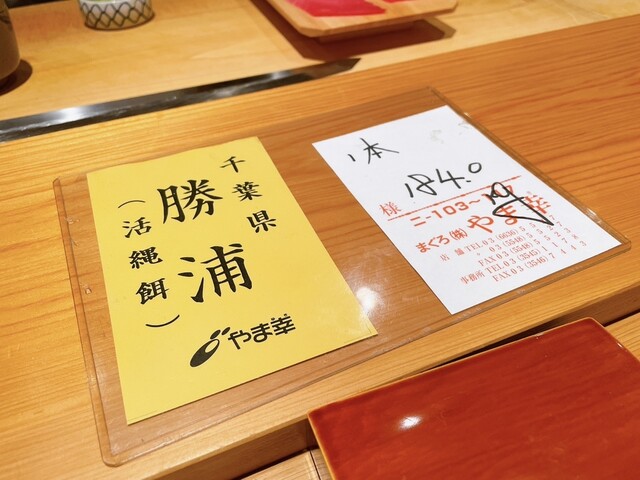 千葉県
勝浦
(活縄餌)
やま幸
1本
184.0
様
ニ-103~
まぐろ㈱やま幸
店舗TEL03(6636)
03(5548)
FAX03(5548)
事務所TEL03(3545)
FAX03(3546)